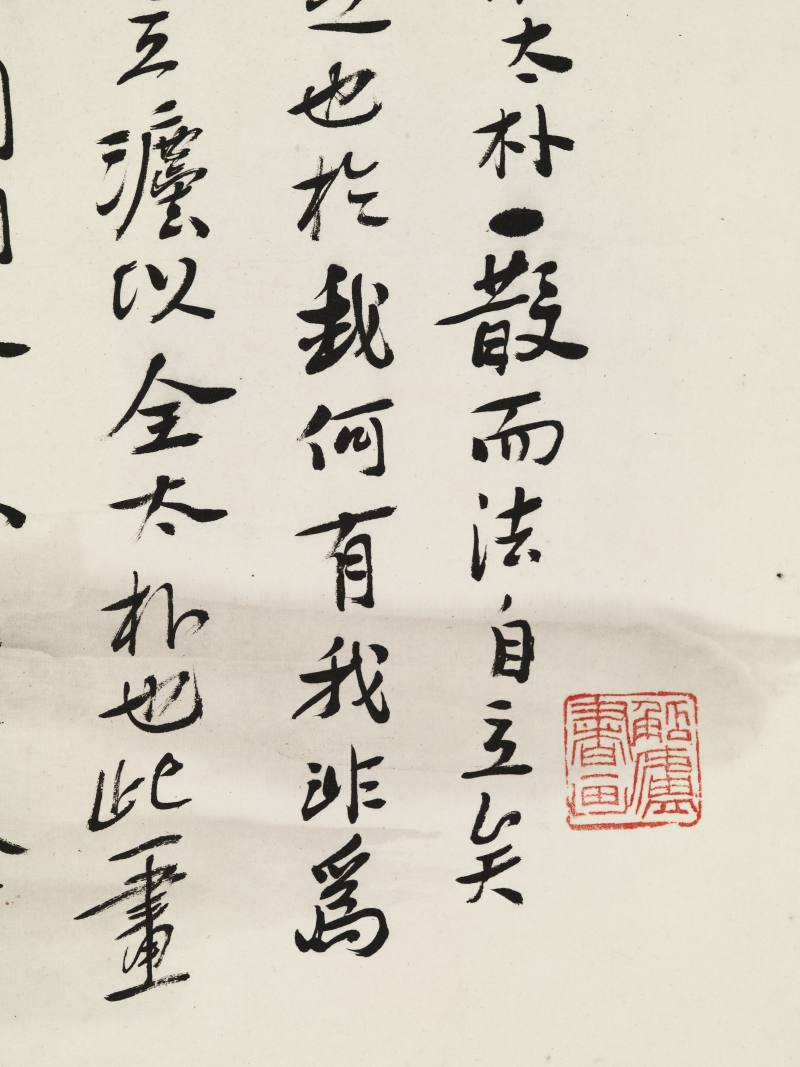 太朴一散而法自立矣
也於我何有我非爲
立灋以全太朴也此畫
廬書画